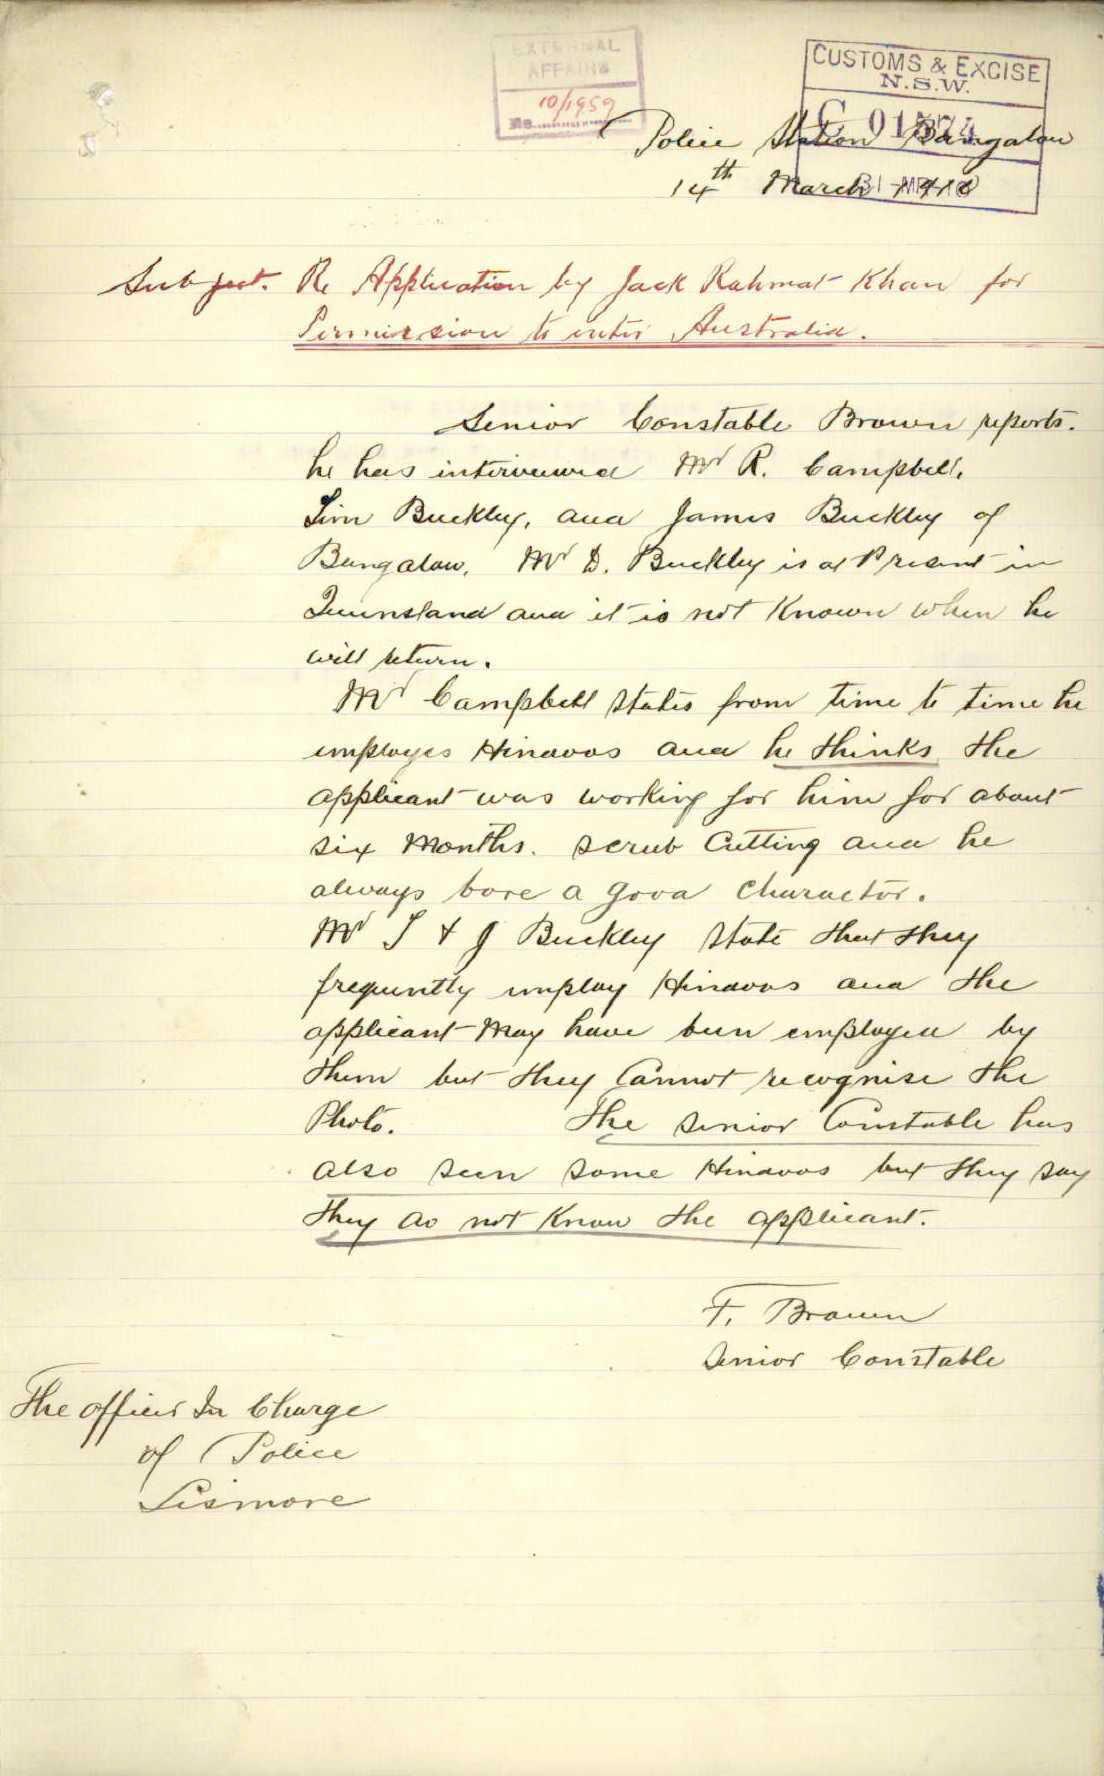 EXTERNAL
AFFAIRS
No. 10/1959
CUSTOMS & EXCISE
N.S.W.
C 01574
31 MR 10
Police Station Bangalow
14th March 1910
Subject. Re Application by Jack Rahmat Khan for
Permission to enter Australia.
Senior Constable Brown reports.
he has interviewed Mr R. Campbell,
Tim Buckley, and James Buckley of
Bangalow, Mr D. Buckley is at Present in
Queensland and it is not Known when he
will return.
Mr Campbell states from time to time he
employes Hindoos and he thinks the
applicant was working for him for about
six Months. scrub Cutting and he
always bore a good Charactor.
Mr T & J Buckley state that they
frequently employ Hindoos and the
applicant May have been employed by
them but they Cannot recognise the
Photo. The senior Constable has
also seen some Hindoos but they say
they do not Know the applicant.
F. Brown
Senior Constable
The officer In Charge
of Police
Lismore